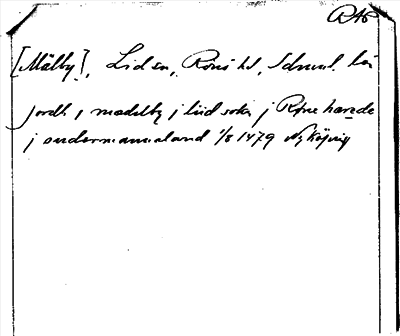 RAP
[Mälby], Lid sn, Rönö hd, Sdmnl. län
jordh j madelby j liid sokn j Röne harede
j sudermannaland 1/8 1479 Nyköping